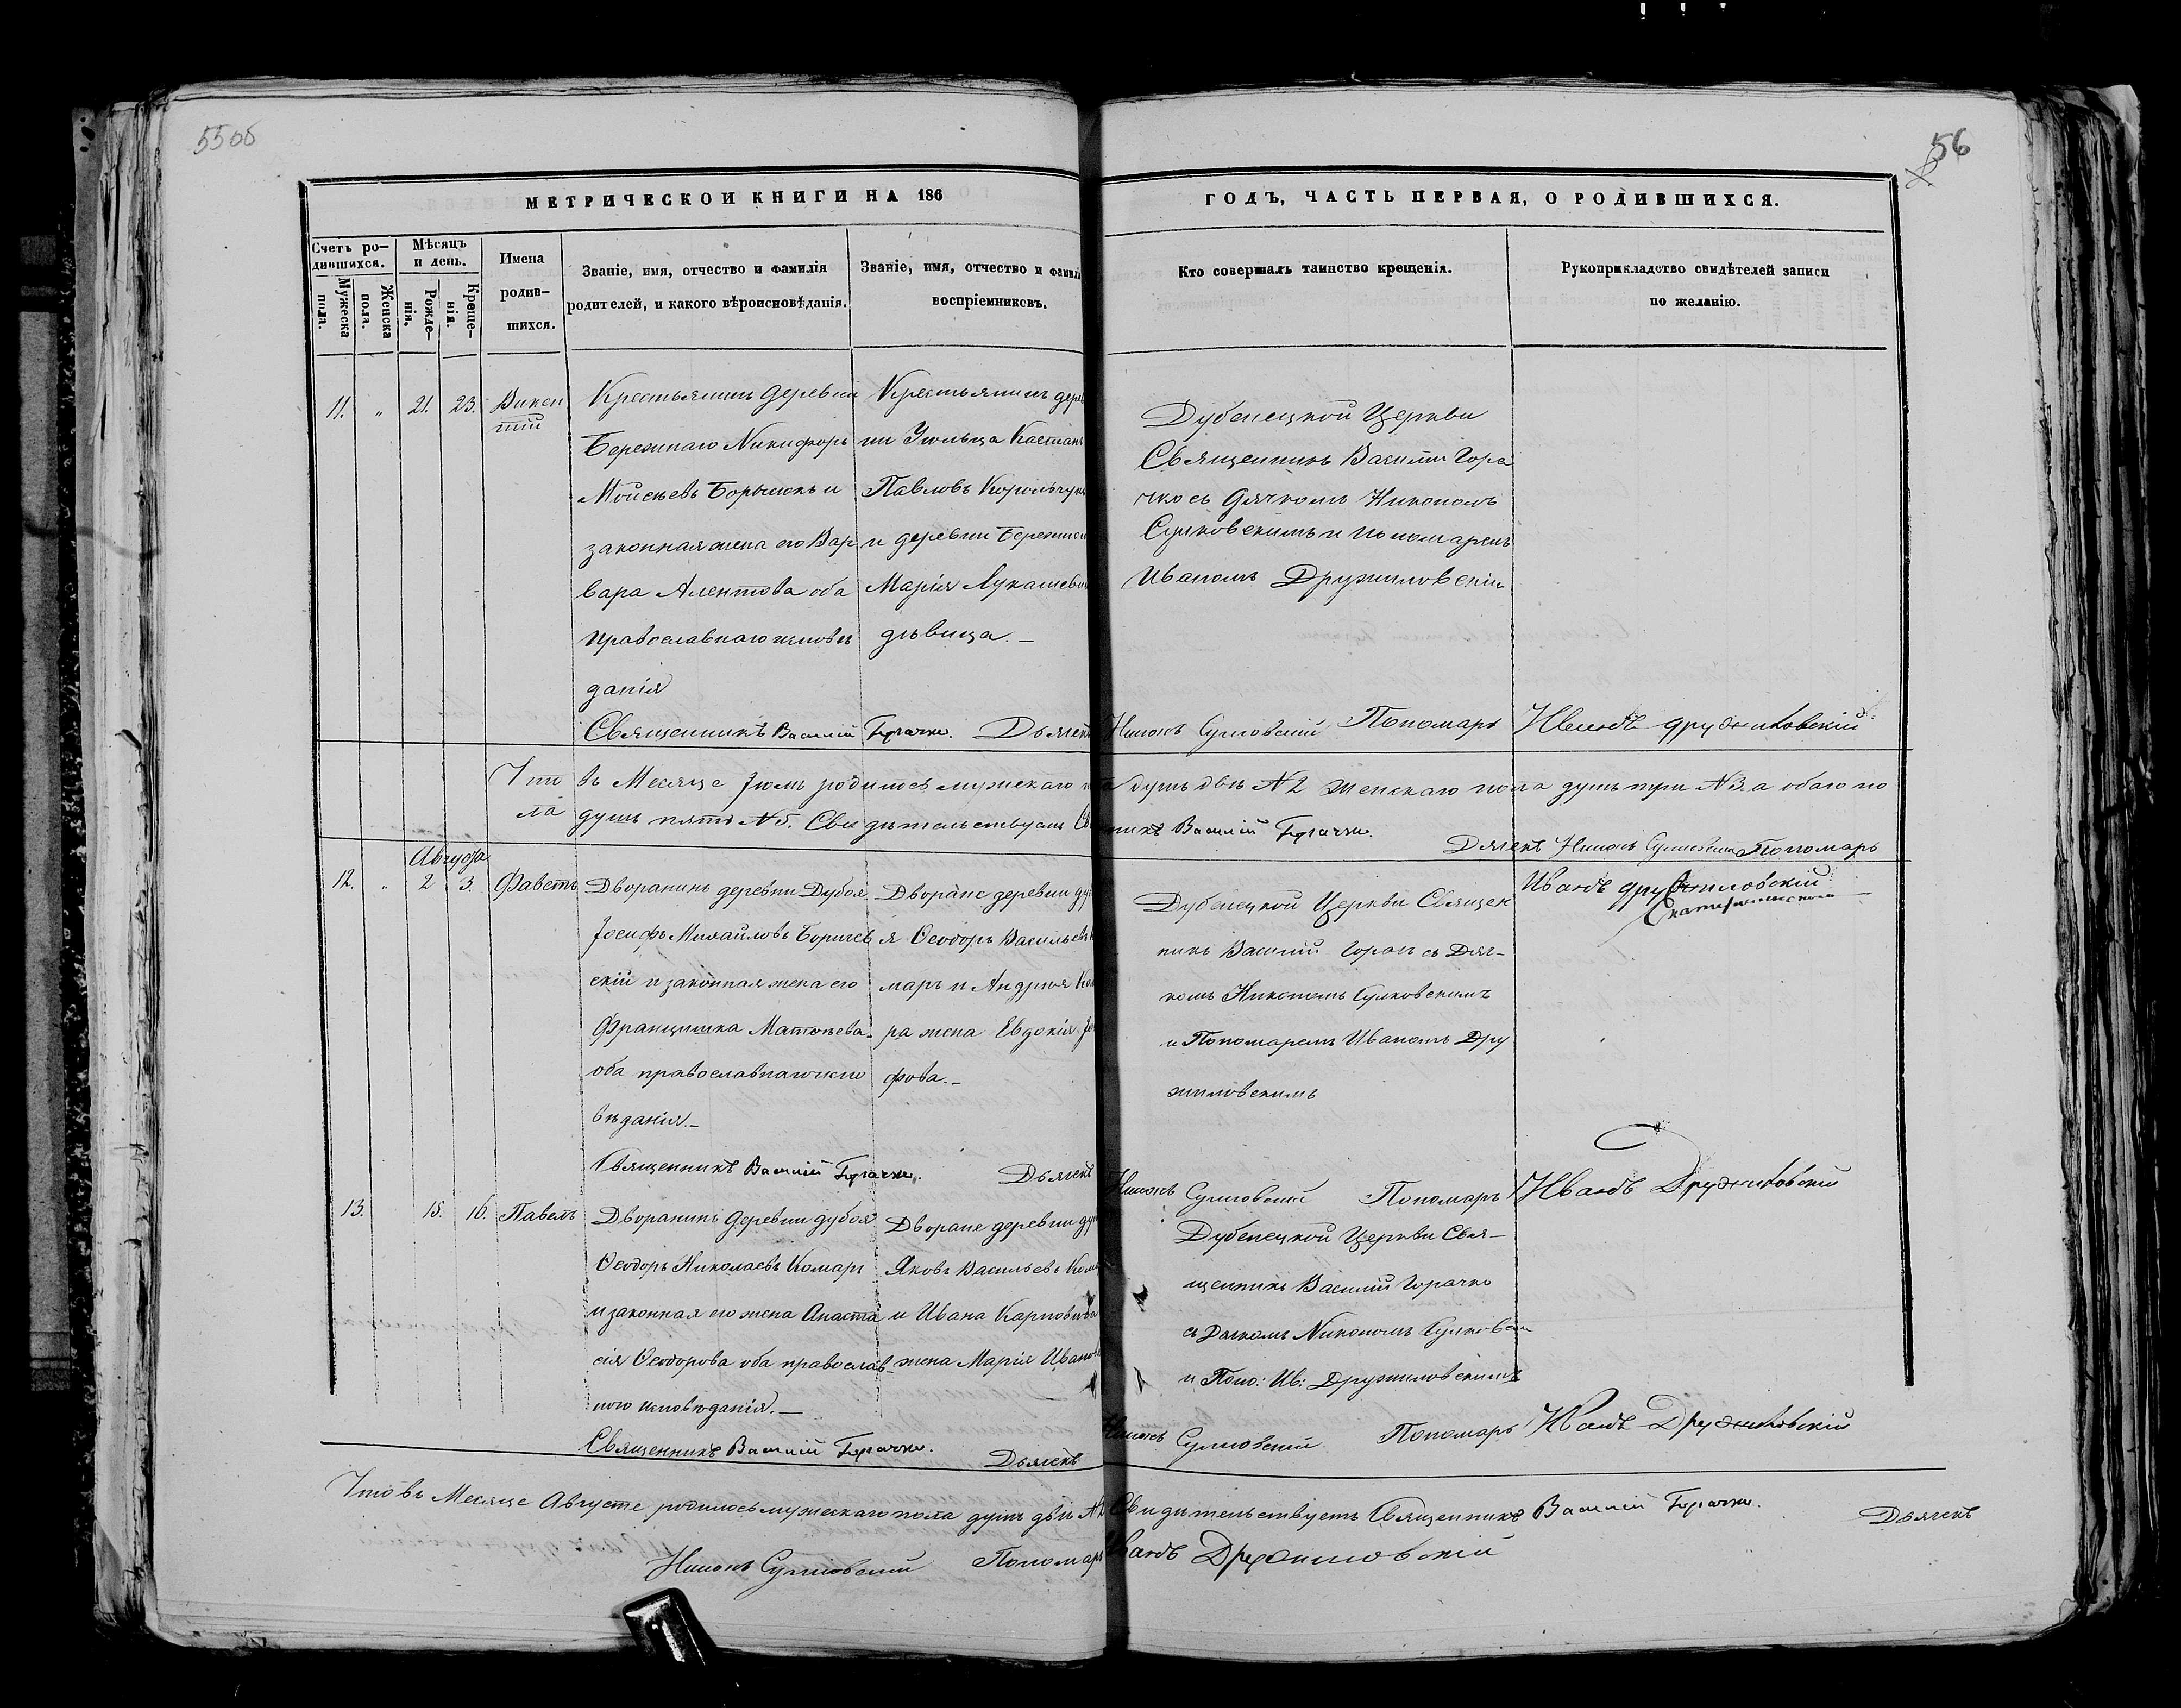 55об
56
МЕТРИЧЕСКОЙ КНИГИ НА 186
ГОДЪ, ЧАСТЬ ПЕРВАЯ, О РОДИВШИХСЯ.
Счетъ ро-
дившихся.
Мужеска
пола.
Женска
пола.
Мѣсяцъ
и день.
Рожде-
нія.
Креще-
нія.
Имена
родив-
шихся.
Званіе, имя, отчество и фамилія
родителей, и какого вѣроисповѣданія.
Званіе, имя, отчество и фамилі
воспріемниковъ.
Кто совершалъ таинство крещенія.
Рукоприкладство свидѣтелей записи
по желанію.
11. " 21. 23. Викен
тій
Крестьянинъ деревни
Бережнаго Никифоръ
Мойсѣевъ и
законная жена его Вар
вара оба
православнаго исповѣ
данія
Крестьянинъ дере
ни
Павловъ Корольчукъ
и деревни
Марія
дѣвица.
Дубенецкой Церкви
Священникъ Василій Гора
чко съ Дячкомъ Никономъ
Сулковскимъ и пономаремъ
Иваномъ Дружиловскимъ
Священникъ Василій Горачко. Дьячекъ Никонъ Сулковскій Пономарь Иванъ Дружиловскій
Что въ Месяце Іюлѣ родилося мужескаго по ла душъ двѣ №2 женскаго пола душъ три №3. а обаго по
ла душъ пять №5. Свидѣтельствуемъ Священникъ Василій Горачко.
Дячекъ Никонъ Сулковскій Пономарь
Иванъ Дружиловскій
Августа
12. " 2 3. Фавстъ
Дворанинъ деревни Дубоя
Іосифъ Михаиловъ Боричев
скій и законная жена его
Францишка Матѳѣева
оба православнаго испо
вѣданія.
Дворане деревни ду
я Ѳеодоръ Васильевъ Ко
маръ и Андрея Кома
ра жена Евдокія Іо
фова.
Дубенецкой Церкви Священ
никъ Василій Горач съ Дяч-
комъ Никономъ Сулковскимъ
и Пономаремъ Иваномъ Дру
жиловскимъ
Священникъ Василій Горачко. Дьячекъ Никонъ Сулковскій Пономарь Иванъ Дружиловскій
13. 15. 16. Павелъ
Дворанинъ деревни дубоя
Ѳеодоръ Николаевъ Комаръ
и законная его жена Анаста
сія Ѳеодорова оба православ-
ного исповѣданія.
Дворане деревни ду
Яковъ Васильевъ Кома
и Ивана Карповича
жена Марія Иванов
Дубенецкой Церкви Свя-
щенникъ Василій Горачко
съ Дячкомъ Никономъ Сулковски
и Поно: Ив: Дружиловскимъ
Священникъ Василій Горачко. Дьячекъ Никонъ Сулковскій Пономарь Иванъ Дружиловскій
Что въ Месяце Августе родилось мужескаго пола душъ двѣ №2 Свидѣтельствуетъ Священникъ Василій Горачко. Дьячекъ
Никонъ Сулковскій Пономарь Иванъ Дружиловскій